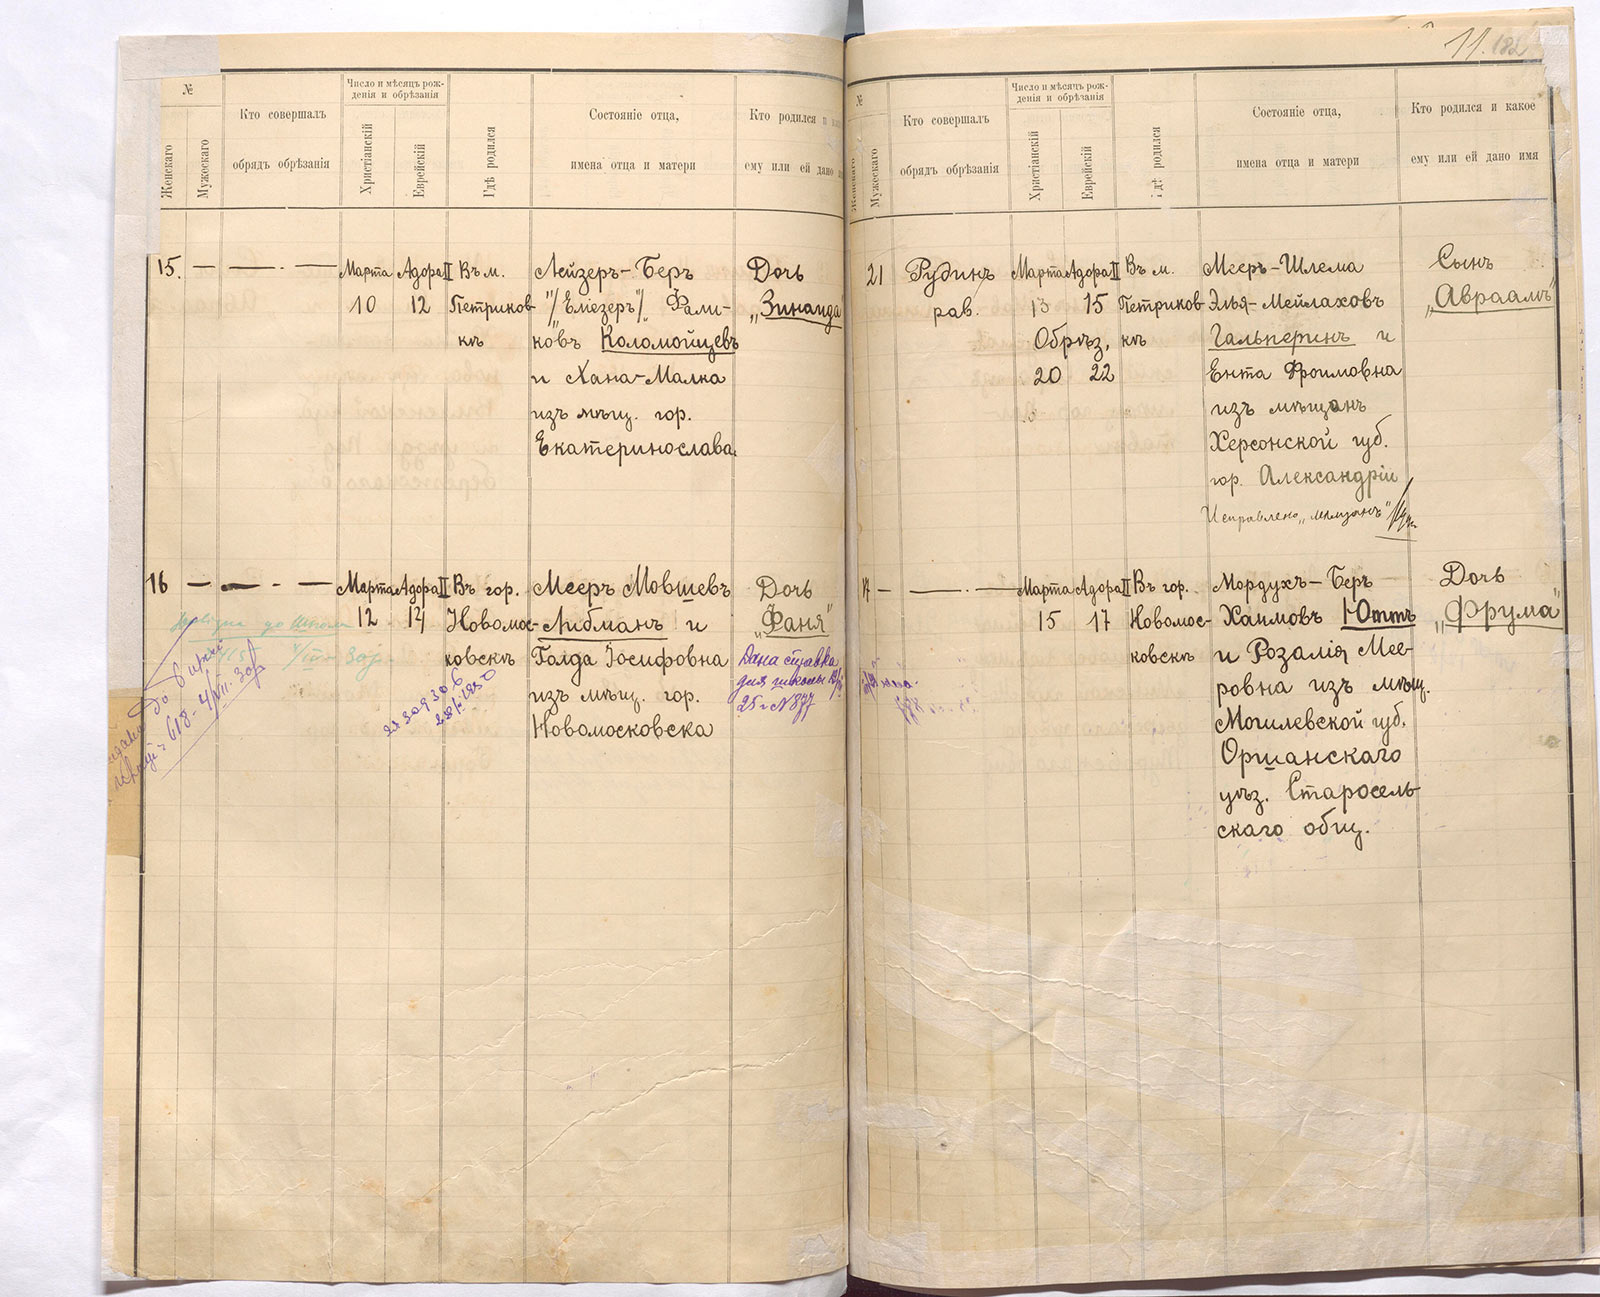 №
Женскаго
Мужескаго
Кто совершалъ
обрядъ обрѣзанія
Число и мѣсяцъ рож-
денія и обрѣзанія
Христіанскій
Еврейскій
Гдѣ родился
Состояніе отца,
имена отца и матери
Кто родился и
ему или ей дано
15.
Марта
10
Адора II
12
Въ м.
Петриков-
кѣ
Лейзеръ-Беръ
"/Елиезеръ"/ Фали-
ковъ Коломойцевъ
и Хана-Малка
изъ мѣщ. гор.
Екатеринослава.
Дочь
„Зинаида
16
Марта
12
Адора II
14
Въ гор.
Новомос-
ковскѣ
Мееръ Мовшевъ
Либманъ и
Голда Іосифовна
изъ мѣщ. гор.
Новомосковска
Дочь
„Фаня"
Дана справка
для школы
25 г. № 877
до
618-4/VII-30
11.
№
Женскаго
Мужескаго
Кто совершалъ
обрядъ обрѣзанія
Число и мѣсяцъ рож-
денія и обрѣзанія
Христіанскій
Еврейскій
Гдѣ родился
Состояніе отца,
имена отца и матери
Кто родился и какое
ему или ей дано имя
21
Рудинъ
рав.
Марта
13
Обрѣз.
20
Адора II
15
22
Въ м.
Петриков-
кѣ
Мееръ-Шлема
Элья-Мейлаховъ
Гальперинъ и
Ента Фроимовна
изъ мѣщанъ
Херсонской губ.
гор. Александріи
Исправлено „мѣщанъ"
Сынъ
„Авраамъ"
17
Марта
15
Адора II
17
Въ гор.
Новомос-
ковскѣ
Мордухъ-Беръ
Хаимовъ Юттъ
и Розалія Мее-
ровна изъ мѣщ.
Могилевской губ.
Оршанскаго
уѣз. Старосель-
скаго общ.
Дочь
„Фрума"